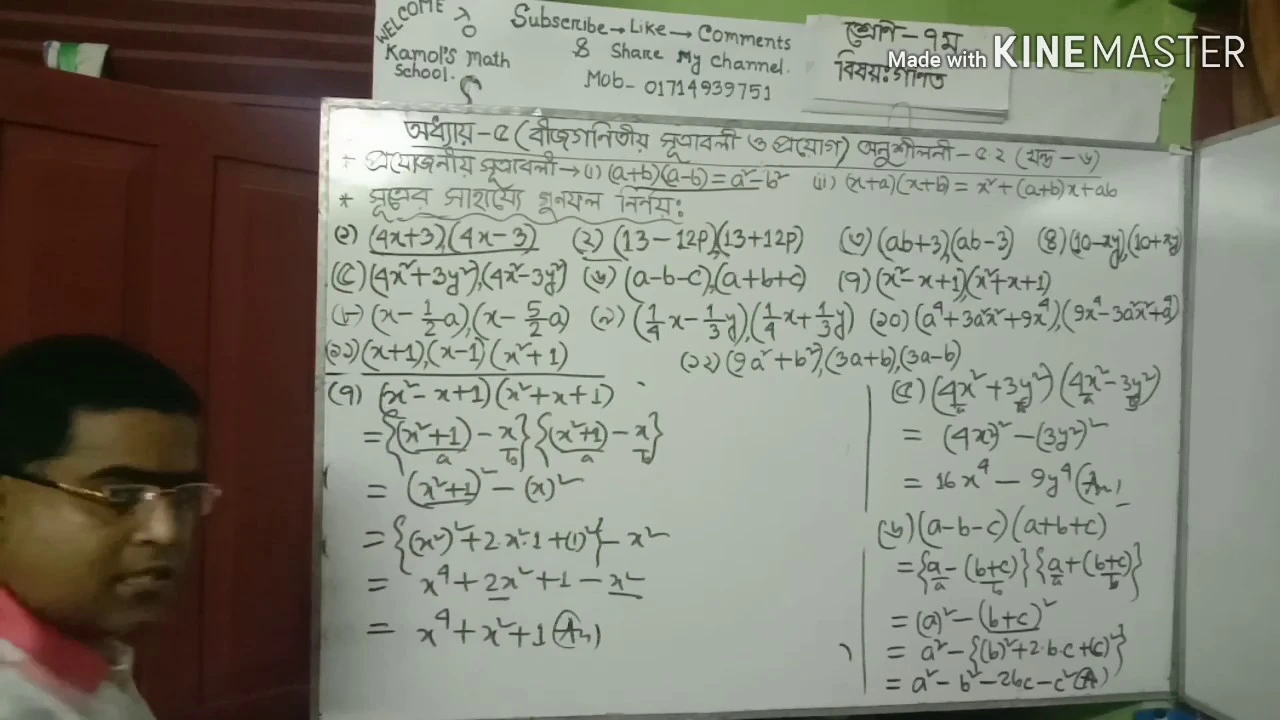 WELCOME TO
Kamol's Math
School.
Subscribe → Like → Comments
& Share My channel.
Mob- 01714939751
শ্রেণি - ৭ম
বিষয়ঃ গণিত
Made with KINEMASTER
অধ্যায় - ৫ (বীজগনিতীয় সূত্রাবলী ও প্রয়োগ) অনুশীলনী - ৫.২ (খন্ড - ৬)
+ প্রয়োজনীয় সূত্রাবলী → (i) (a+b)(a-b) = a²-b² (ii) (x+a)(x+b) = x²+(a+b)x+ab
* সূত্রের সাহায্যে গুনফল নির্নয়:
(১) (4x+3),(4x-3) (২) (13-12p),(13+12p) (৩) (ab+3),(ab-3) (৪) (10-xy),(10+xy)
(৫) (4x²+3y²),(4x²-3y²) (৬) (a-b-c),(a+b+c) (৭) (x²-x+1)(x²+x+1)
(৮) (x-1/2a),(x-5/2a) (৯) (1/4x-1/3y),(1/4x+1/3y) (১০) (a⁴+3a²x²+9x⁴),(9x⁴-3a²x²+a⁴)
(১১) (x+1),(x-1)(x²+1) (১২) (9a²+b²),(3a+b),(3a-b)
(৭) (x²-x+1)(x²+x+1)
= {(x²+1) - x} {(x²+1) - x}
a b a b
= (x²+1)² - (x)²
= {(x²)²+2.x².1+(1)²} - x²
= x⁴+2x²+1-x²
= x⁴+x²+1 (An)
(৫) (4x²+3y²) (4x²-3y²)
a b a b
= (4x²)² - (3y²)²
= 16x⁴ - 9y⁴ (An)
(৬) (a-b-c) (a+b+c)
= {a - (b+c)} {a + (b+c)}
a b a b
= (a)² - (b+c)²
= a² - {(b)²+2.b.c+(c)²}
= a² - b² - 2bc - c² (A)